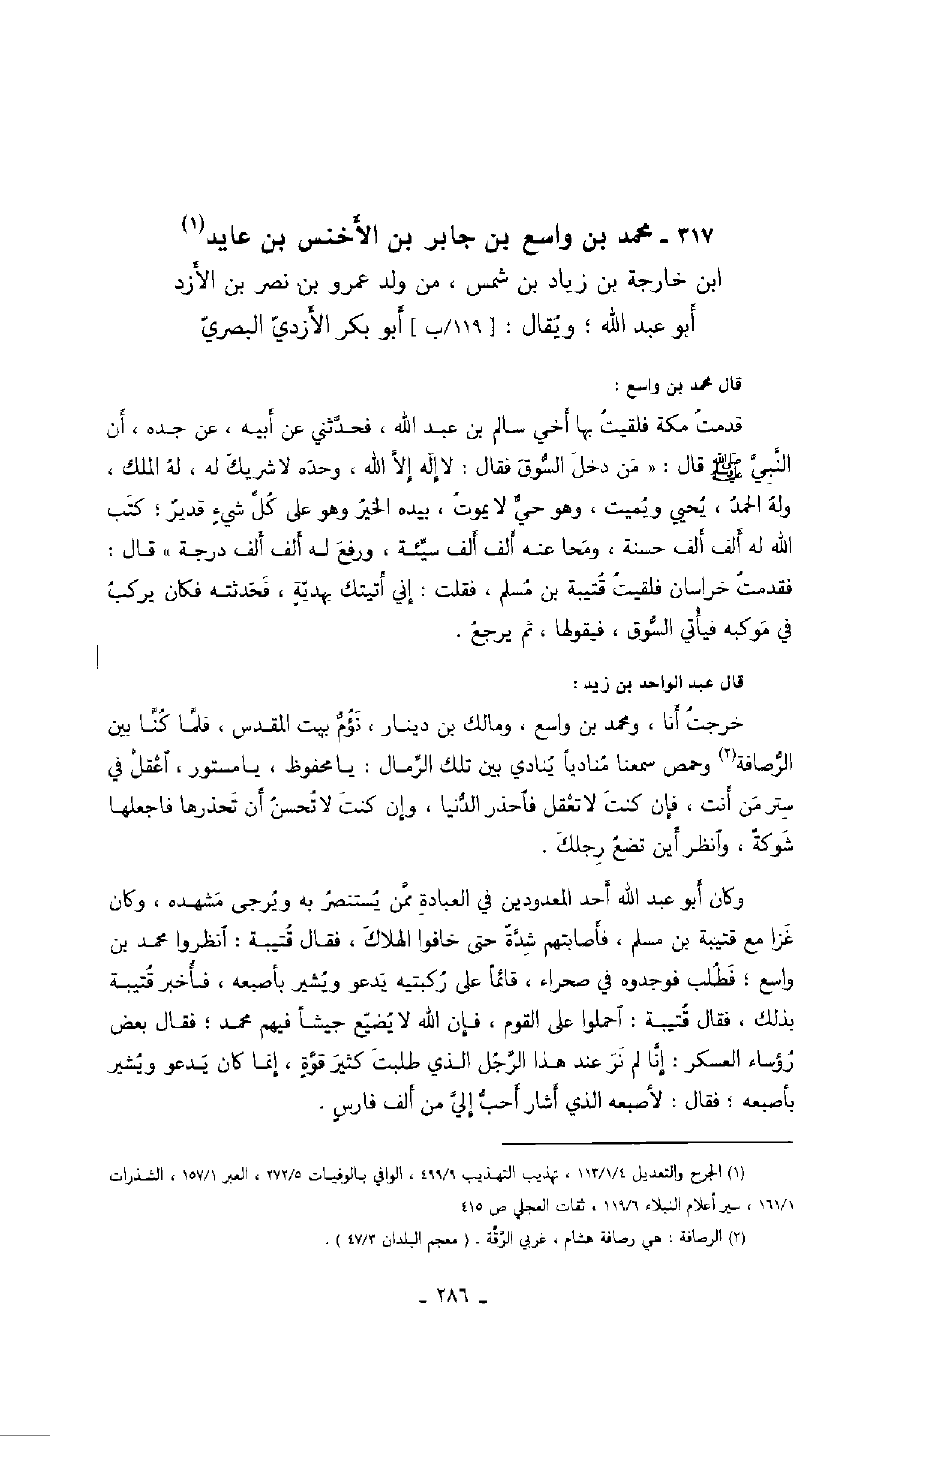 ٣١٧ ـ محمد بن واسع بن جابر بن الأخنس بن عايد(١)
ابن خارجة بن زياد بن شمس ، من ولد عمرو بن نصر بن الأزد
أبو عبد الله ؛ ويُقال : [ ١١٩/ب ] أبو بكر الأزديّ البصريّ
قال محمد بن واسع :
قدمتُ مكة فلقيتُ بها أخي سالم بن عبد الله ، فحدَّثني عن أبيه ، عن جده ، أن
النَّبيَّ ﷺ قال : « مَن دخلَ السُّوقَ فقال : لا إلٰه إلاَّ الله ، وحدَه لا شريكَ له ، لهُ الملك ،
ولهُ الحمدُ ، يُحيي ويُميت ، وهو حيٌّ لا يموتُ ، بيده الخيرُ وهو على كُلِّ شيءٍ قديرٌ ؛ كتَب
الله له ألف ألف حسنة ، ومَحا عنه ألف ألف سيِّئة ، ورفعَ له ألف ألف درجة » قال :
فقدمتُ خراسان فلقيتُ قُتيبة بن مُسلم ، فقلت : إني أتيتك بهديّةٍ ، فَحَدثته فكان يركبُ
في مَوكبه فيأتي السُّوق ، فيقولها ، ثم يرجعُ .
قال عبد الواحد بن زيد :
خرجتُ أنا ، ومحمد بن واسع ، ومالك بن دينار ، نَؤُمُّ بيت المقدس ، فلمَّا كُنَّا بين
الرُّصافة(٢) وحمص سمعنا مُنادياً يُنادي بين تلك الرِّمال : يا محفوظ ، يا مستور ، اَعْقلْ في
سِترِ مَن أنت ، فإن كنتَ لا تعْقل فاَحذر الدُّنيا ، وإن كنتَ لا تُحسنُ أن تَحذرها فاجعلها
شَوكةً ، واَنظر أين تضعُ رِجلكَ .
وكان أبو عبد الله أحد المعدودين في العبادةِ ممَّن يُستنصرُ به ويُرجى مَشهده ، وكان
غَزا مع قتيبة بن مسلم ، فأصابتهم شِدَّةٌ حتى خافوا الهلاكَ ، فقال قُتيبة : اَنظروا محمد بن
واسع ؛ فَطُلب فوجدوه في صحراء ، قائماً على رُكبتيه يَدعو ويُشير بأصبعه ، فأخبر قُتيبة
بذلك ، فقال قُتيبة : اَحملوا على القوم ، فإن الله لا يُضيّع جيشاً فيهم محمد ؛ فقال بعض
رُؤساء العسكر : إنَّا لم نَرَ عند هذا الرَّجُل الذي طلبتَ كثيرَ قوَّةٍ ، إنما كان يَدعو ويُشير
بأصبعه ؛ فقال : لأصبعه الذي أشار أحبُّ إليَّ من ألف فارسٍ .
(١) الجرح والتعديل ١١٣/١/٤ ، تهذيب التهذيب ٤٩٩/٩ ، الوافي بالوفيات ٢٧٢/٥ ، العبر ١٥٧/١ ، الشذرات
١٦١/١ ، سير أعلام النبلاء ١١٩/٦ ، ثقات العجلي ص ٤١٥
(٢) الرصافة : هي رصافة هشام ، غربي الرَّقّة . ( معجم البلدان ٤٧/٣ ) .
ـ ٢٨٦ ـ